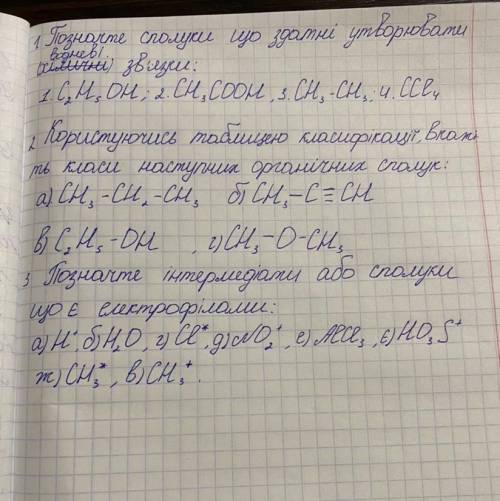 1. Позначте сполуки що здатні утворювати
водневі
(хімічні) звязки:
1. C₂H₅OH; 2. CH₃COOH, 3. CH₃-CH₃; 4. CCl₄
2. Користуючись таблицею класифікації, вкажі
ть класи наступних органічних сполук:
а) CH₃-CH₂-CH₃ б) CH₃-C≡CH
в) C₂H₅-OH , г) CH₃-O-CH₃
3 Позначте інтермедіати або сполуки
що є електрофілами:
а) H⁺, б) H₂O, г) Cl*, д) NO₂⁺, е) AlCl₃, є) HO₃S⁺
ж) CH₃*, в) CH₃⁺.